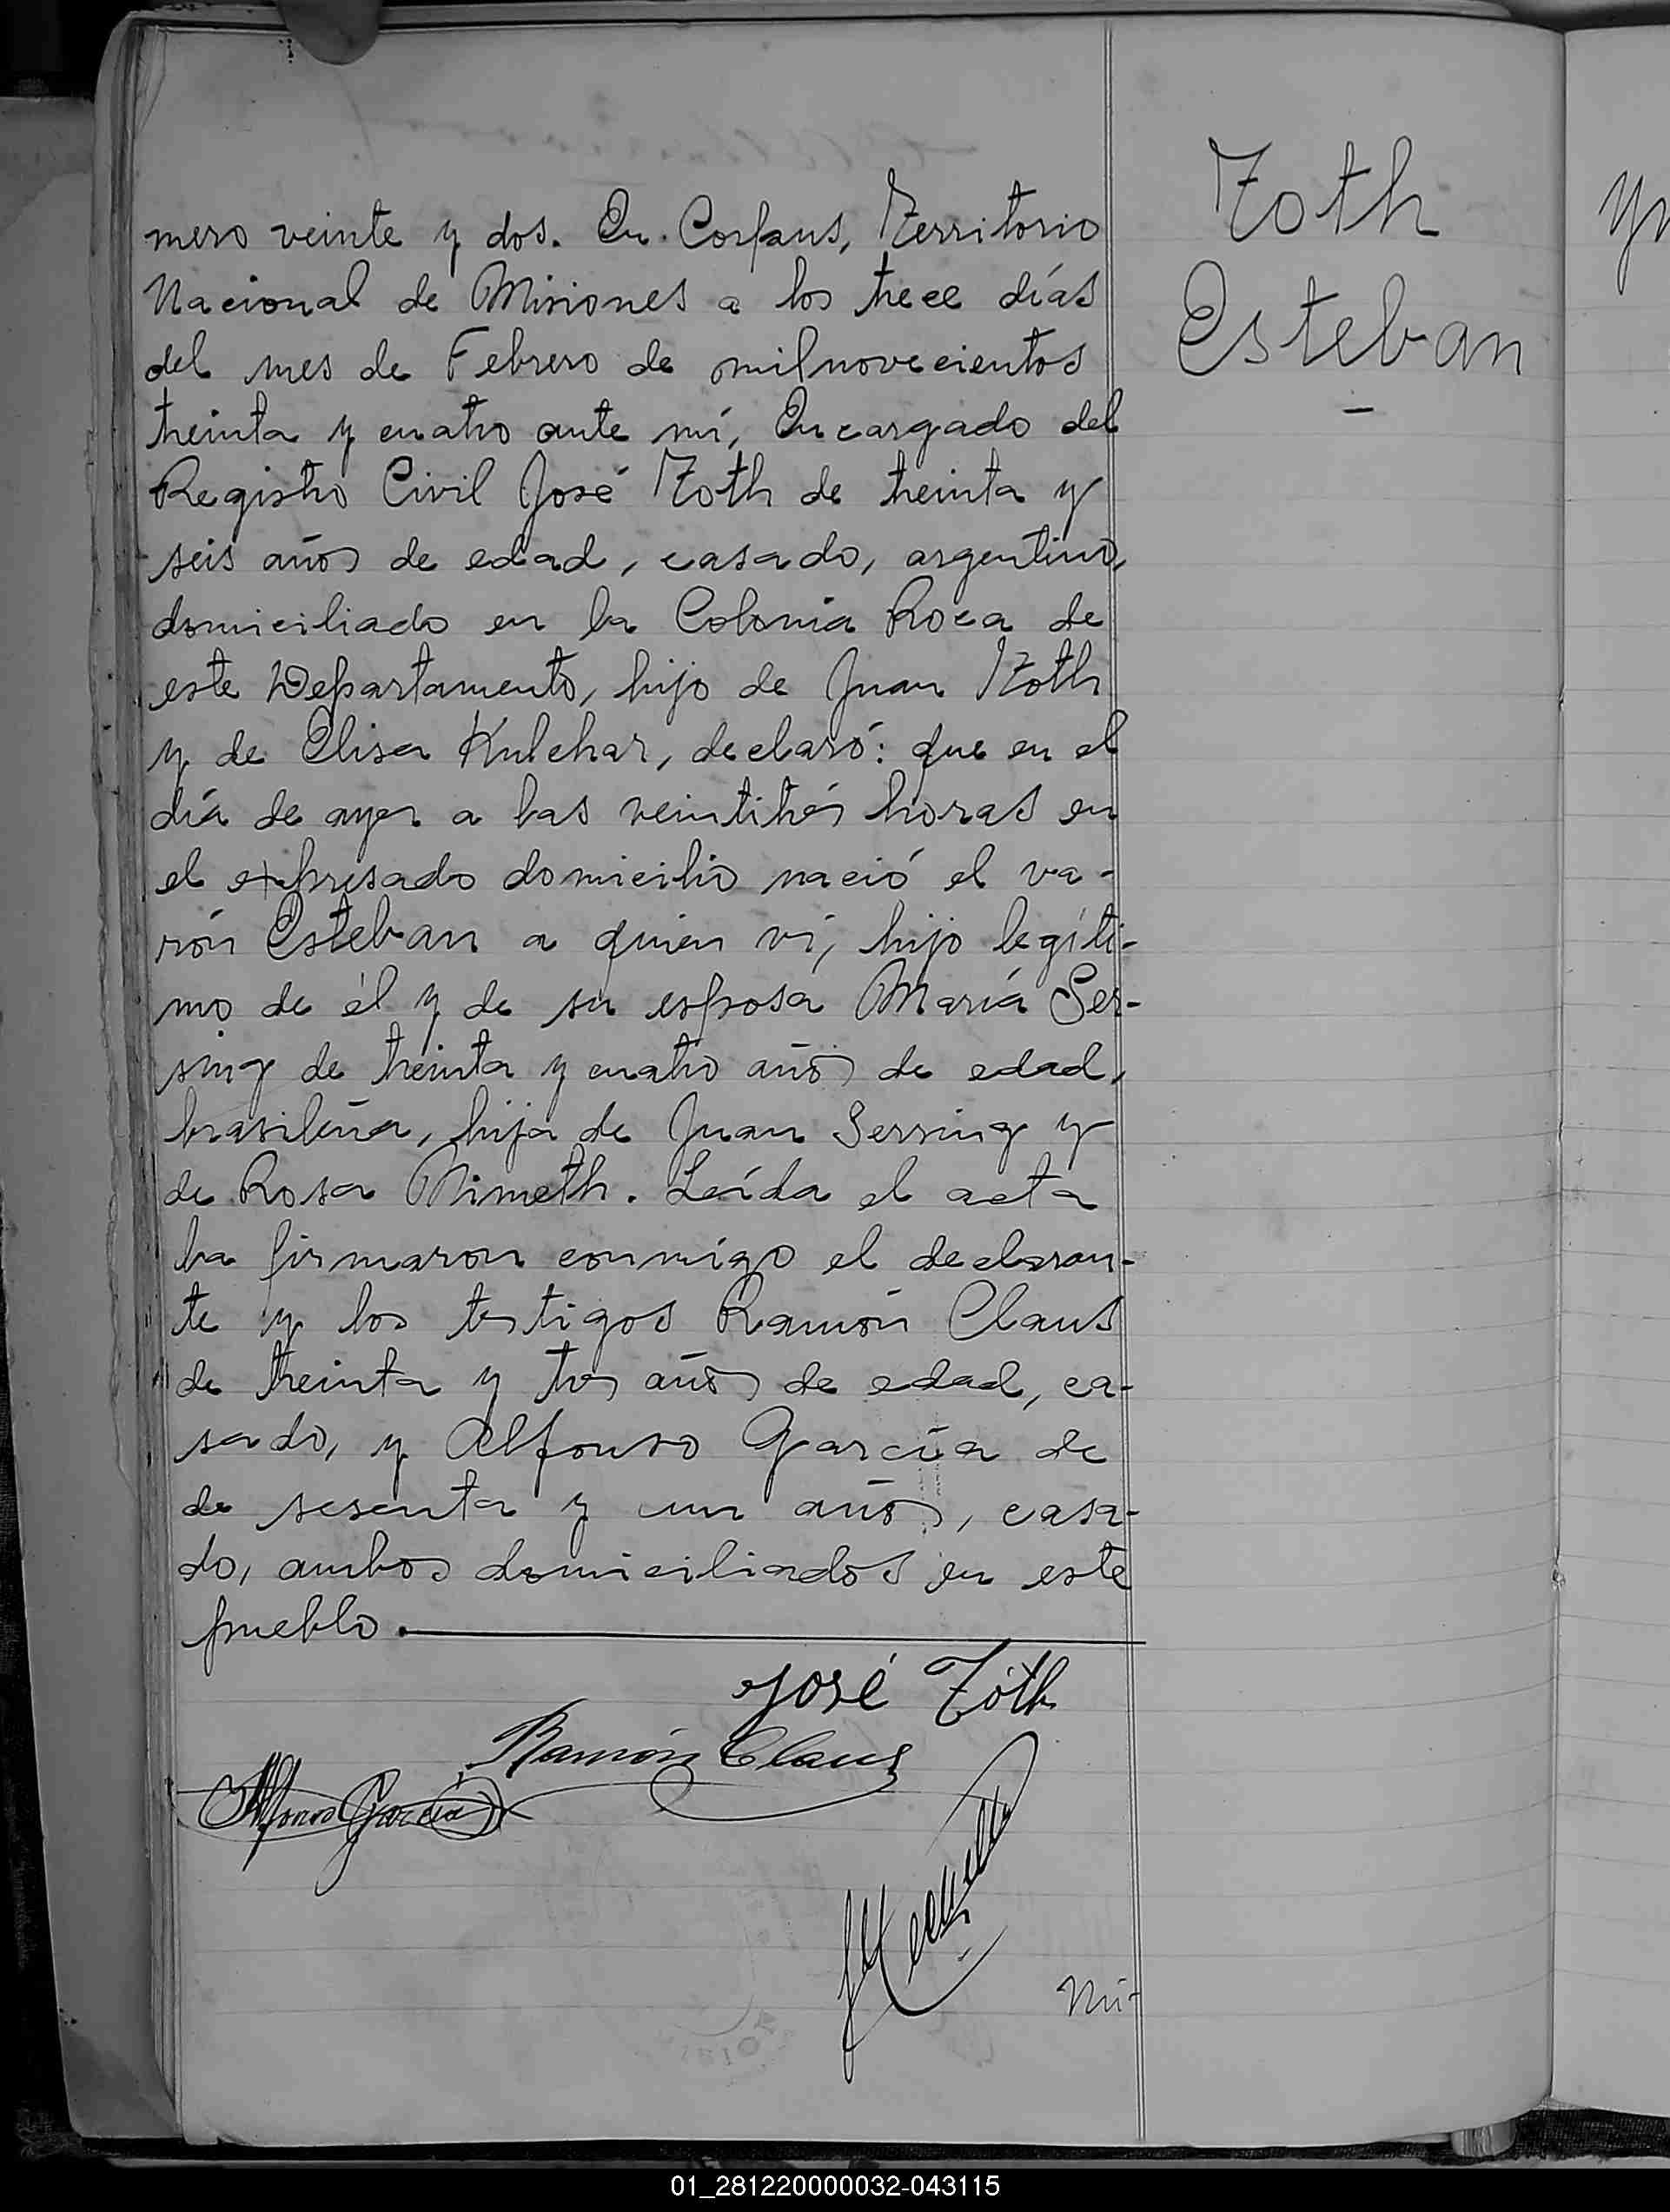 mero veinte y dos. En Corpus, Territorio
Nacional de Misiones a los trece días
del mes de Febrero de milnovecientos
treinta y cuatro ante mí, Encargado del
Registro Civil José Toth de treinta y
seis años de edad, casado, argentino,
domiciliado en la Colonia Roca de
este Departamento, hijo de Juan Toth
y de Elisa Kulchar, declaró: que en el
día de ayer a las veintitrés horas en
el expresado domicilio nació el va-
rón Esteban a quien ví, hijo legíti-
mo de él y de su esposa María Ser-
sing de treinta y cuatro años de edad,
brasileña, hija de Juan Sersing y
de Rosa Nimeth. Leída el acta
la firmaron conmigo el declaran-
te y los testigos Ramón Claus
de treinta y tres años de edad, ca-
sado, y Alfonso García de
de sesenta y un años, casa-
do, ambos domiciliados en este
pueblo.
José Tóth
Ramón Claus
Alfonso García
Nú-
Toth
Esteban
01_281220000032-043115